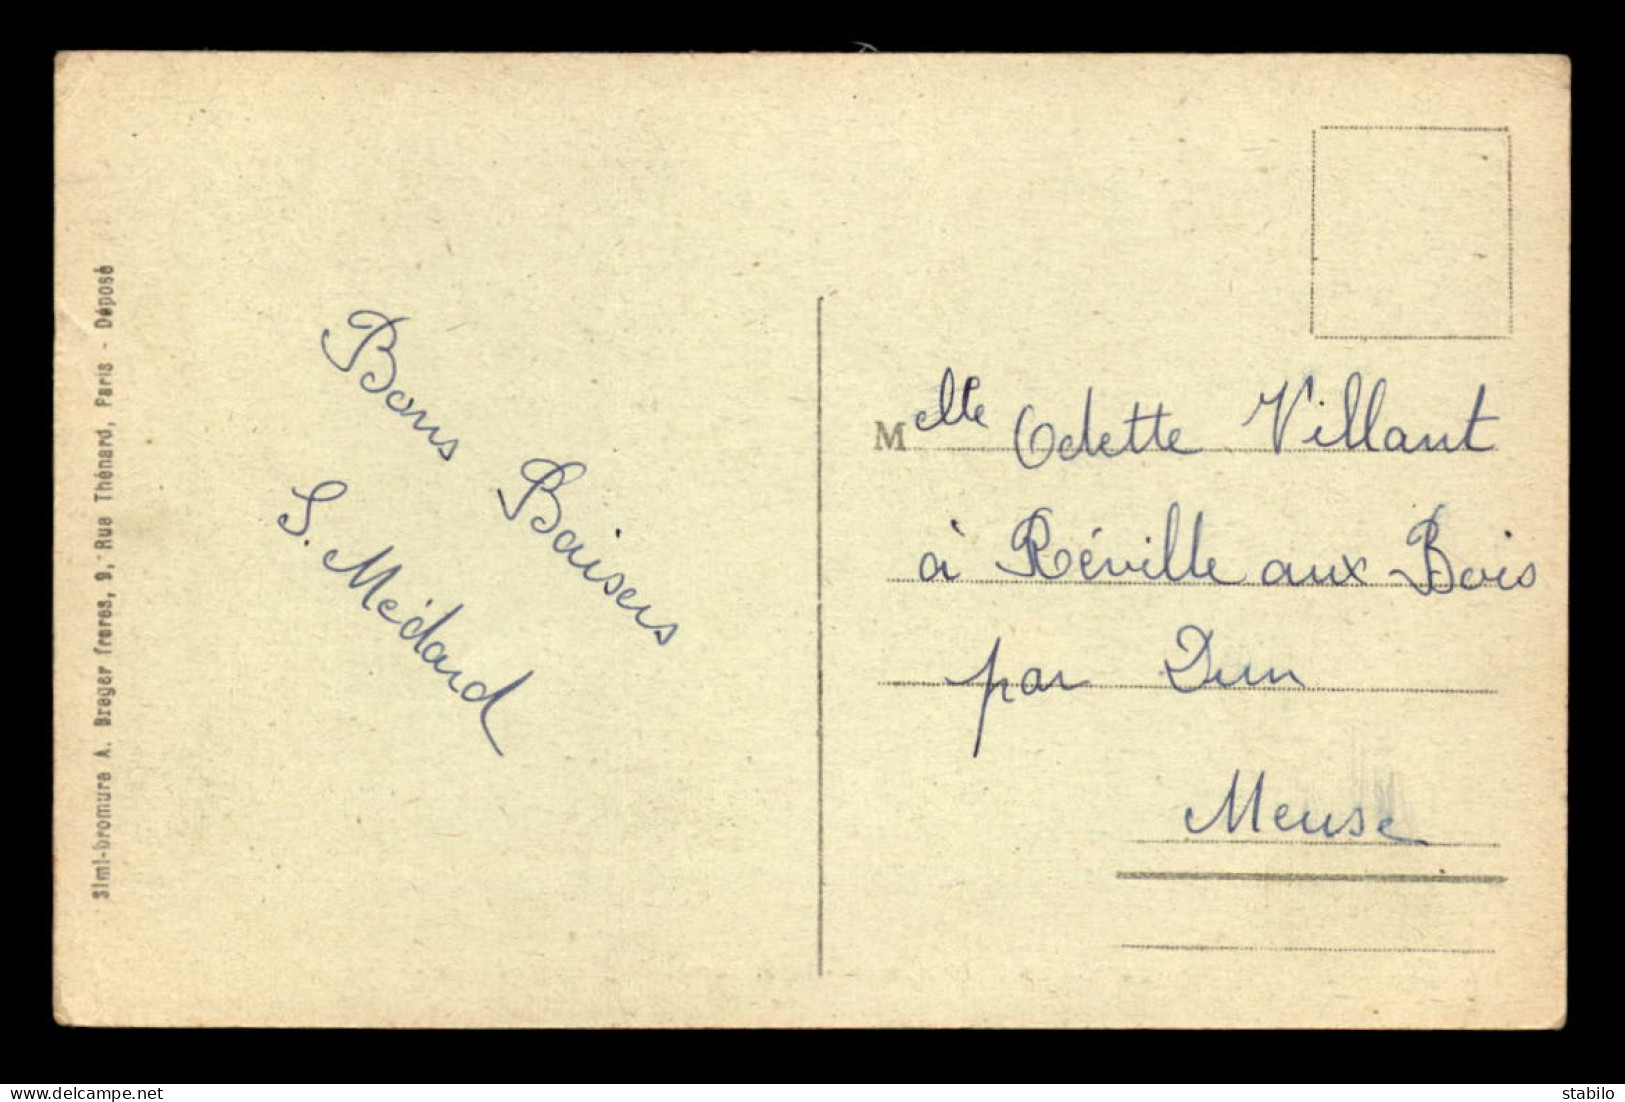 Simi-bromure A. Breger frères, 9, Rue Thénard, Paris - Déposé
Bons Baisers
S. Médard
Melle Odette Villant
à Réville aux Bois
par Dun
Meuse
delcampe.net
stabilo